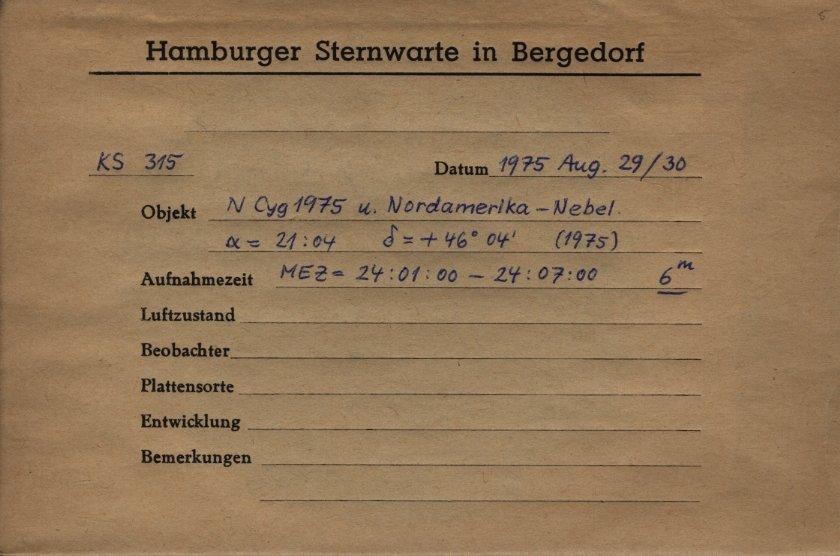 Hamburger Sternwarte in Bergedorf
KS 315 Datum 1975 Aug. 29/30
Objekt N Cyg 1975 u. Nordamerika-Nebel.
α = 21:04 δ = +46° 04' (1975)
Aufnahmezeit MEZ = 24:01:00 – 24:07:00 6ᵐ
Luftzustand
Beobachter
Plattensorte
Entwicklung
Bemerkungen